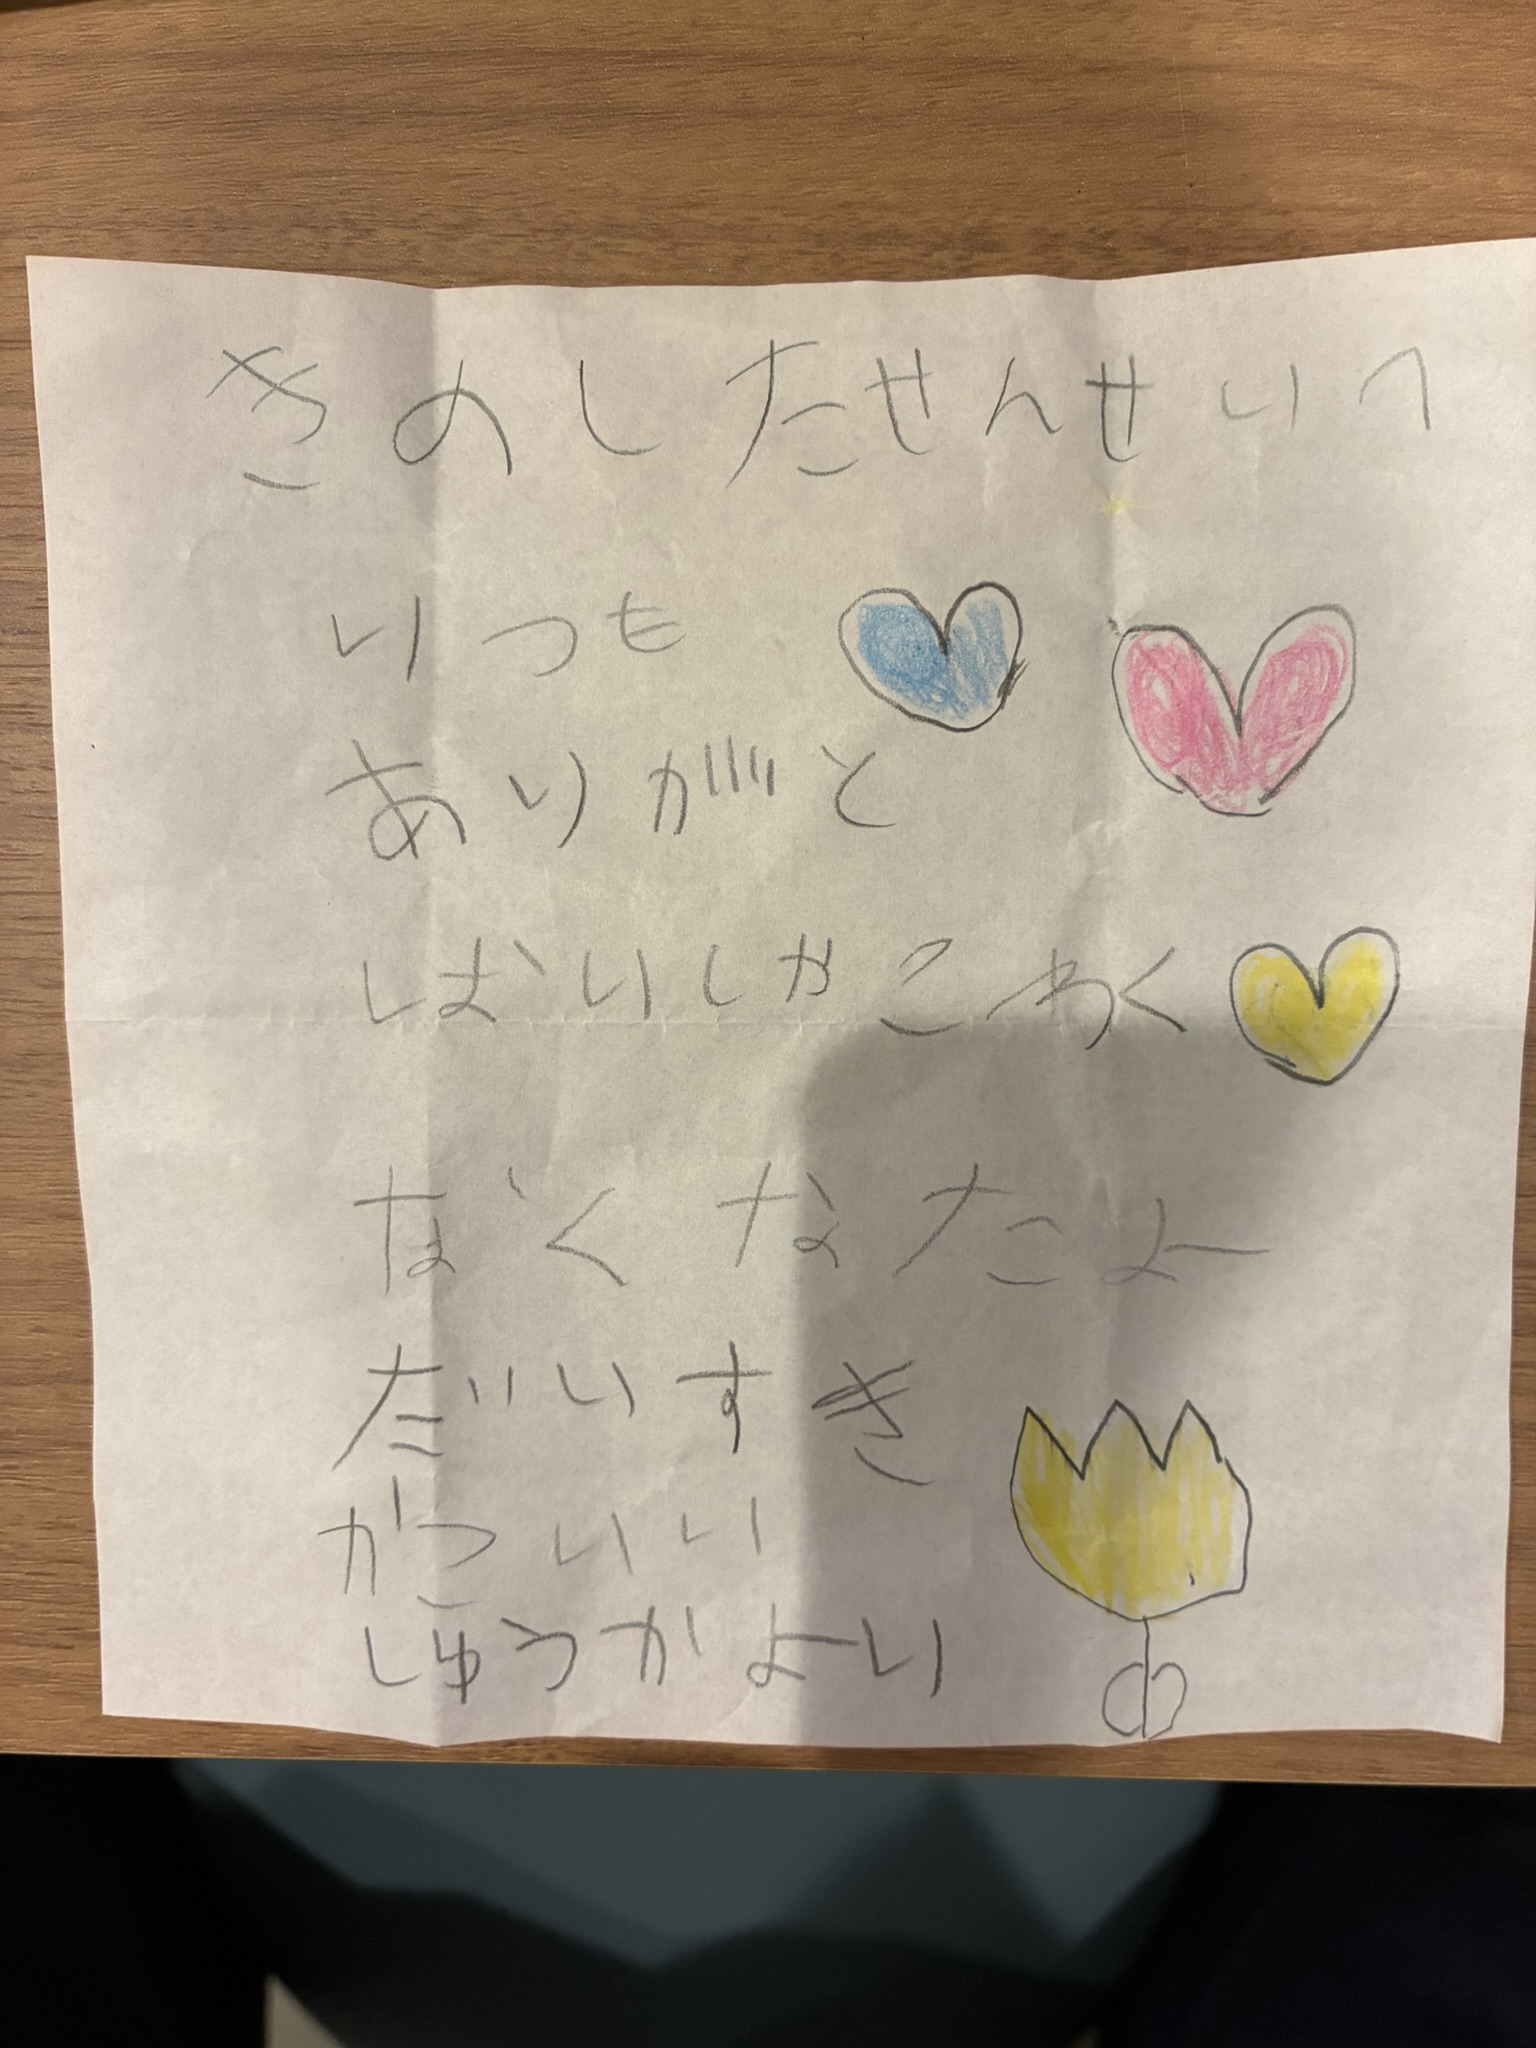 きのしたせんせいへ
いつも
ありがと
しばいしかこわく
なくなたよ
だいすき
がこいい
しゅうがよい